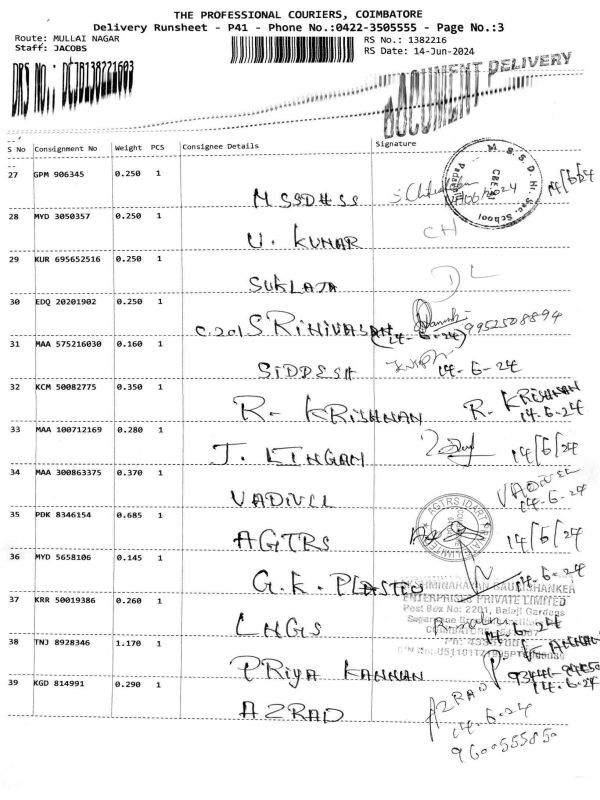 THE PROFESSIONAL COURIERS, COIMBATORE
Delivery Runsheet - P41 - Phone No.:0422-3505555 - Page No.:3
Route: MULLAI NAGAR
RS No.: 1382216
Staff: JACOBS
RS Date: 14-Jun-2024
DRS NO.: DCJB138221603
DOCUMENT DELIVERY
S No Consignment No Weight PCS Consignee Details Signature
27 GPM 906345 0.250 1 MSSDHSS 14/6/24
M.S.S.D. Hr. Sec. School
28 MYD 3050357 0.250 1 U. KUMAR CH
29 KUR 695652516 0.250 1 SUKLAJA DL
30 EDQ 20201902 0.250 1 C.201 SRINIVASAN (14-6-24) 9952508894
31 MAA 575216030 0.160 1 SIDDESH 14-6-24
32 KCM 50082775 0.350 1 R- KRISHNAN R. KRISHNAN
14-6-24
33 MAA 100712169 0.280 1 J. LINGAM 14/6/24
34 MAA 300863375 0.370 1 VADIVEL VADIVEL
14-6-24
35 PDK 8346154 0.685 1 AGTRS 14/6/24
36 MYD 5658106 0.145 1 G.K. PLASTEO 14-6-24
GAURISHANKER
ENTERPRISES PRIVATE LIMITED
Post Box No: 2201, Balaji Gardens
37 KRR 50019386 0.260 1 LNGS 14-6-24
38 TNJ 8928346 1.170 1 PRIYA KANNAN P. KANNAN
14-6-24
39 KGD 814991 0.290 1 AZRAD AZRAD
14-6-24
9600555850